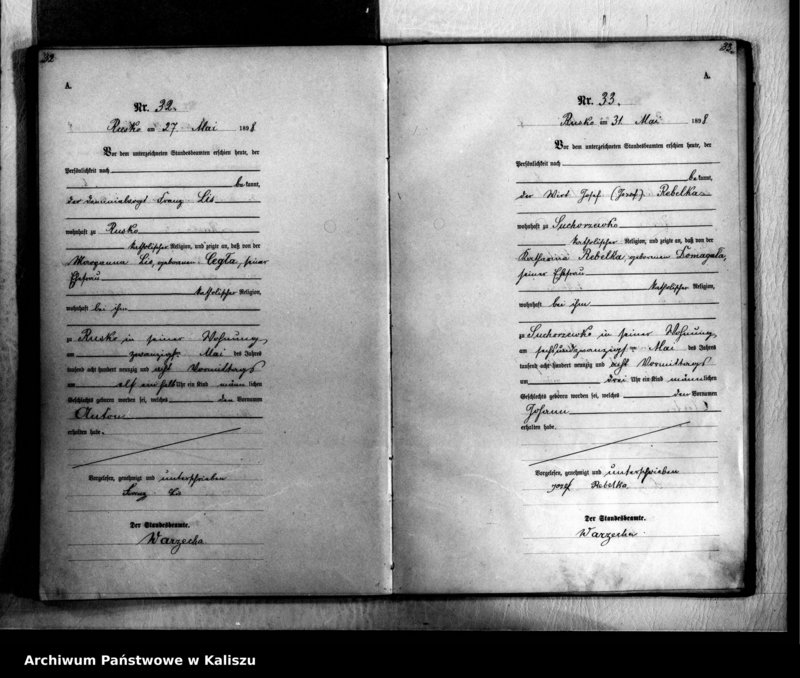 32
A.
Nr. 32.
Rusko am 27 Mai 1898
Vor dem unterzeichneten Standesbeamten erschien heute, der
Persönlichkeit nach
bekannt,
der Franz Lis
wohnhaft zu Rusko
katholischer Religion, und zeigte an, daß von der
Maryanna Lis, geborenen Cegła, seiner
Ehefrau
katholischer Religion,
wohnhaft bei ihm
zu Rusko in seiner Wohnung
am zwanzigst Mai des Jahres
tausend acht hundert neunzig und acht Vormittags
um elf ein halb Uhr ein Kind männlichen
Geschlechts geboren worden sei, welches den Vornamen
Anton
erhalten habe.
Vorgelesen, genehmigt und unterschrieben
Franz Lis
Der Standesbeamte.
Warzecha
33.
A.
Nr. 33.
Rusko am 31 Mai 1898
Vor dem unterzeichneten Standesbeamten erschien heute, der
Persönlichkeit nach
bekannt,
der Wirt Josef (Jozef) Rebelka
wohnhaft zu Suchorzewko
katholischer Religion, und zeigte an, daß von der
Katharina Rebelka, geborenen Domagała,
seiner Ehefrau
katholischer Religion,
wohnhaft bei ihm
zu Suchorzewko in seiner Wohnung
am sechsundzwanzigst Mai des Jahres
tausend acht hundert neunzig und acht Vormittags
um drei Uhr ein Kind männlichen
Geschlechts geboren worden sei, welches den Vornamen
Johann
erhalten habe.
Vorgelesen, genehmigt und unterschrieben
Jozef Rebelka
Der Standesbeamte.
Warzecha
Archiwum Państwowe w Kaliszu